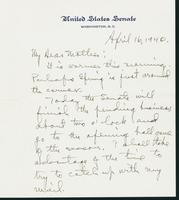 United States Senate
WASHINGTON, D.C.
April 16, 1940.
My Dear Mother:
It is warmer this morning.
Perhaps Spring is just around
the corner.
Today the Senate will
finish the pending business
about two o'clock and
go to the opening ball game
of the season. I shall take
advantage of the time to
try to catch up with my
mail.